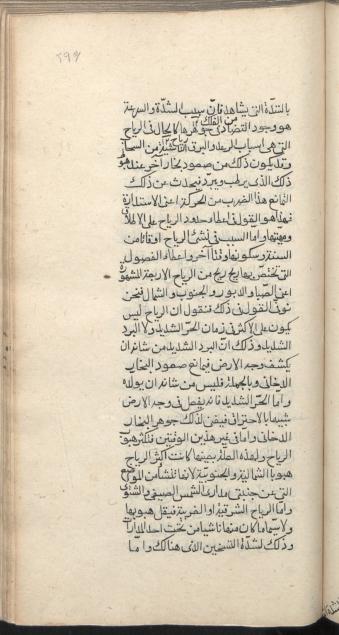 ٢٩٦
بالشدة التى يشاهد فان سبب الشدة والسرعة
هو وجود التضاد فى جوهرها كالحال فى الرياح
من الفلك
التى هى اسباب الرعد والبرق الحادثين من السحاب
وقد يكون ذلك من صعود بخار آخر عند هبوط
ذلك الذى يرطب ويبرد فيحدث عن ذلك
التمانع هذا الضرب من الحركة اعنى الاستدارة
فهذا هو القول فى اعطاء حدود الرياح على الاطلاق
ومهيتها واما السبب فى نشئ الرياح اوقاتا من
السنة وسكونها وقتا آخر واعطاء الفصول
التى تختص بها ريح ريح من الرياح الاربعة المشهورة
اعنى الصبا والدبور والجنوب والشمال فنحن
نوفى القول فى ذلك فنقول ان الرياح ليس
يكون على الاكثر فى زمان الحر الشديد ولا البرد
الشديد وذلك ان البرد الشديد من شانه ان
يكشف وجه الارض فيمانع صعود البخار
الدخانى وبالجملة فليس من شانه ان يولده
واما الحر الشديد فانه يفعل فى وجه الارض
شبيها بالاحتراق فيفنى لذلك جوهر البخار
الدخانى واما فى غير هذين الوقتين فتكثر هبوب
الرياح ولهذه العلة بعينها كانت اكثر الرياح
هبوبا الشمالية والجنوبية لانها تنشأ من المواضع
التى عن جنبتى مدار الشمس الصيفى والشتوى
واما الرياح الشرقية او الغربية فيقل هبوبها
ولا سيما ما كان منها ناشيا من تحت احد المدارات
وذلك لشدة التسخين الذى هنالك واما